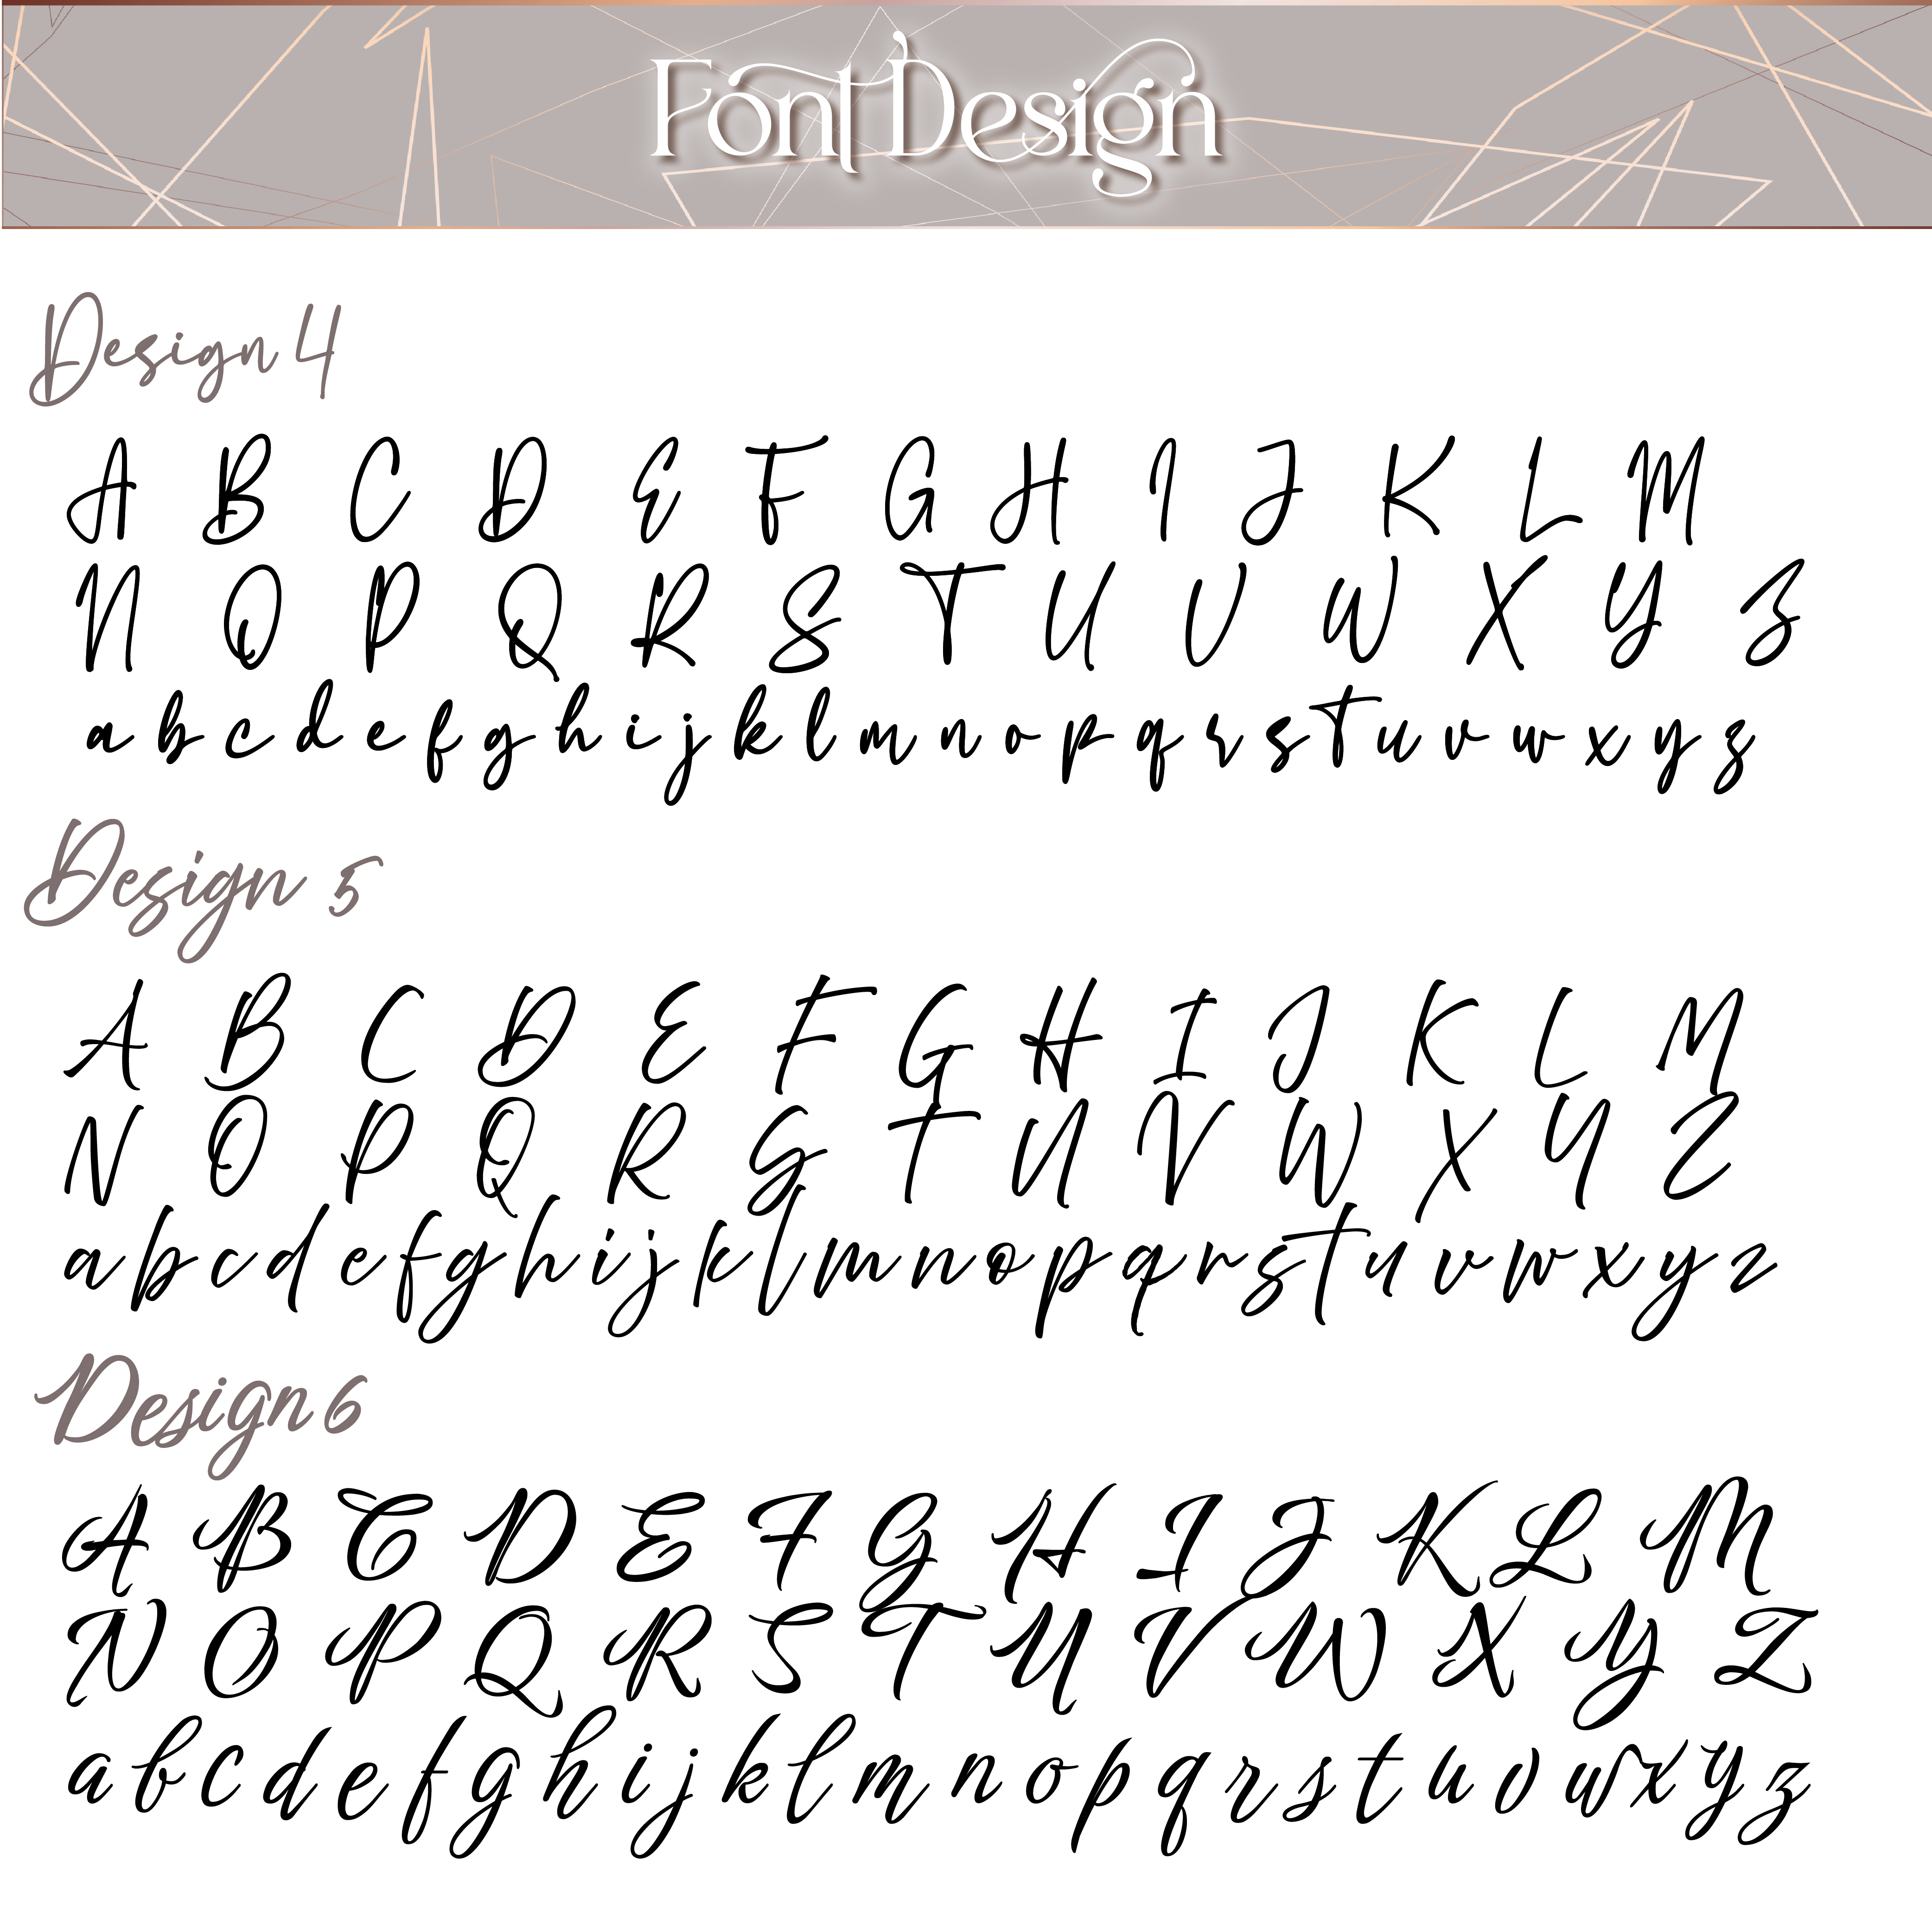 Font Design
Design 4
A B C D E F G H I J K L M
N O P Q R S T U V W X Y Z
a b c d e f g h i j k l m n o p q r s t u v w x y z
Design 5
A B C D E F G H I J K L M
N O P Q R S T U V W X Y Z
a b c d e f g h i j k l m n o p q r s t u v w x y z
Design 6
A B C D E F G H I J K L M
N O P Q R S T U V W X Y Z
a b c d e f g h i j k l m n o p q r s t u v w x y z